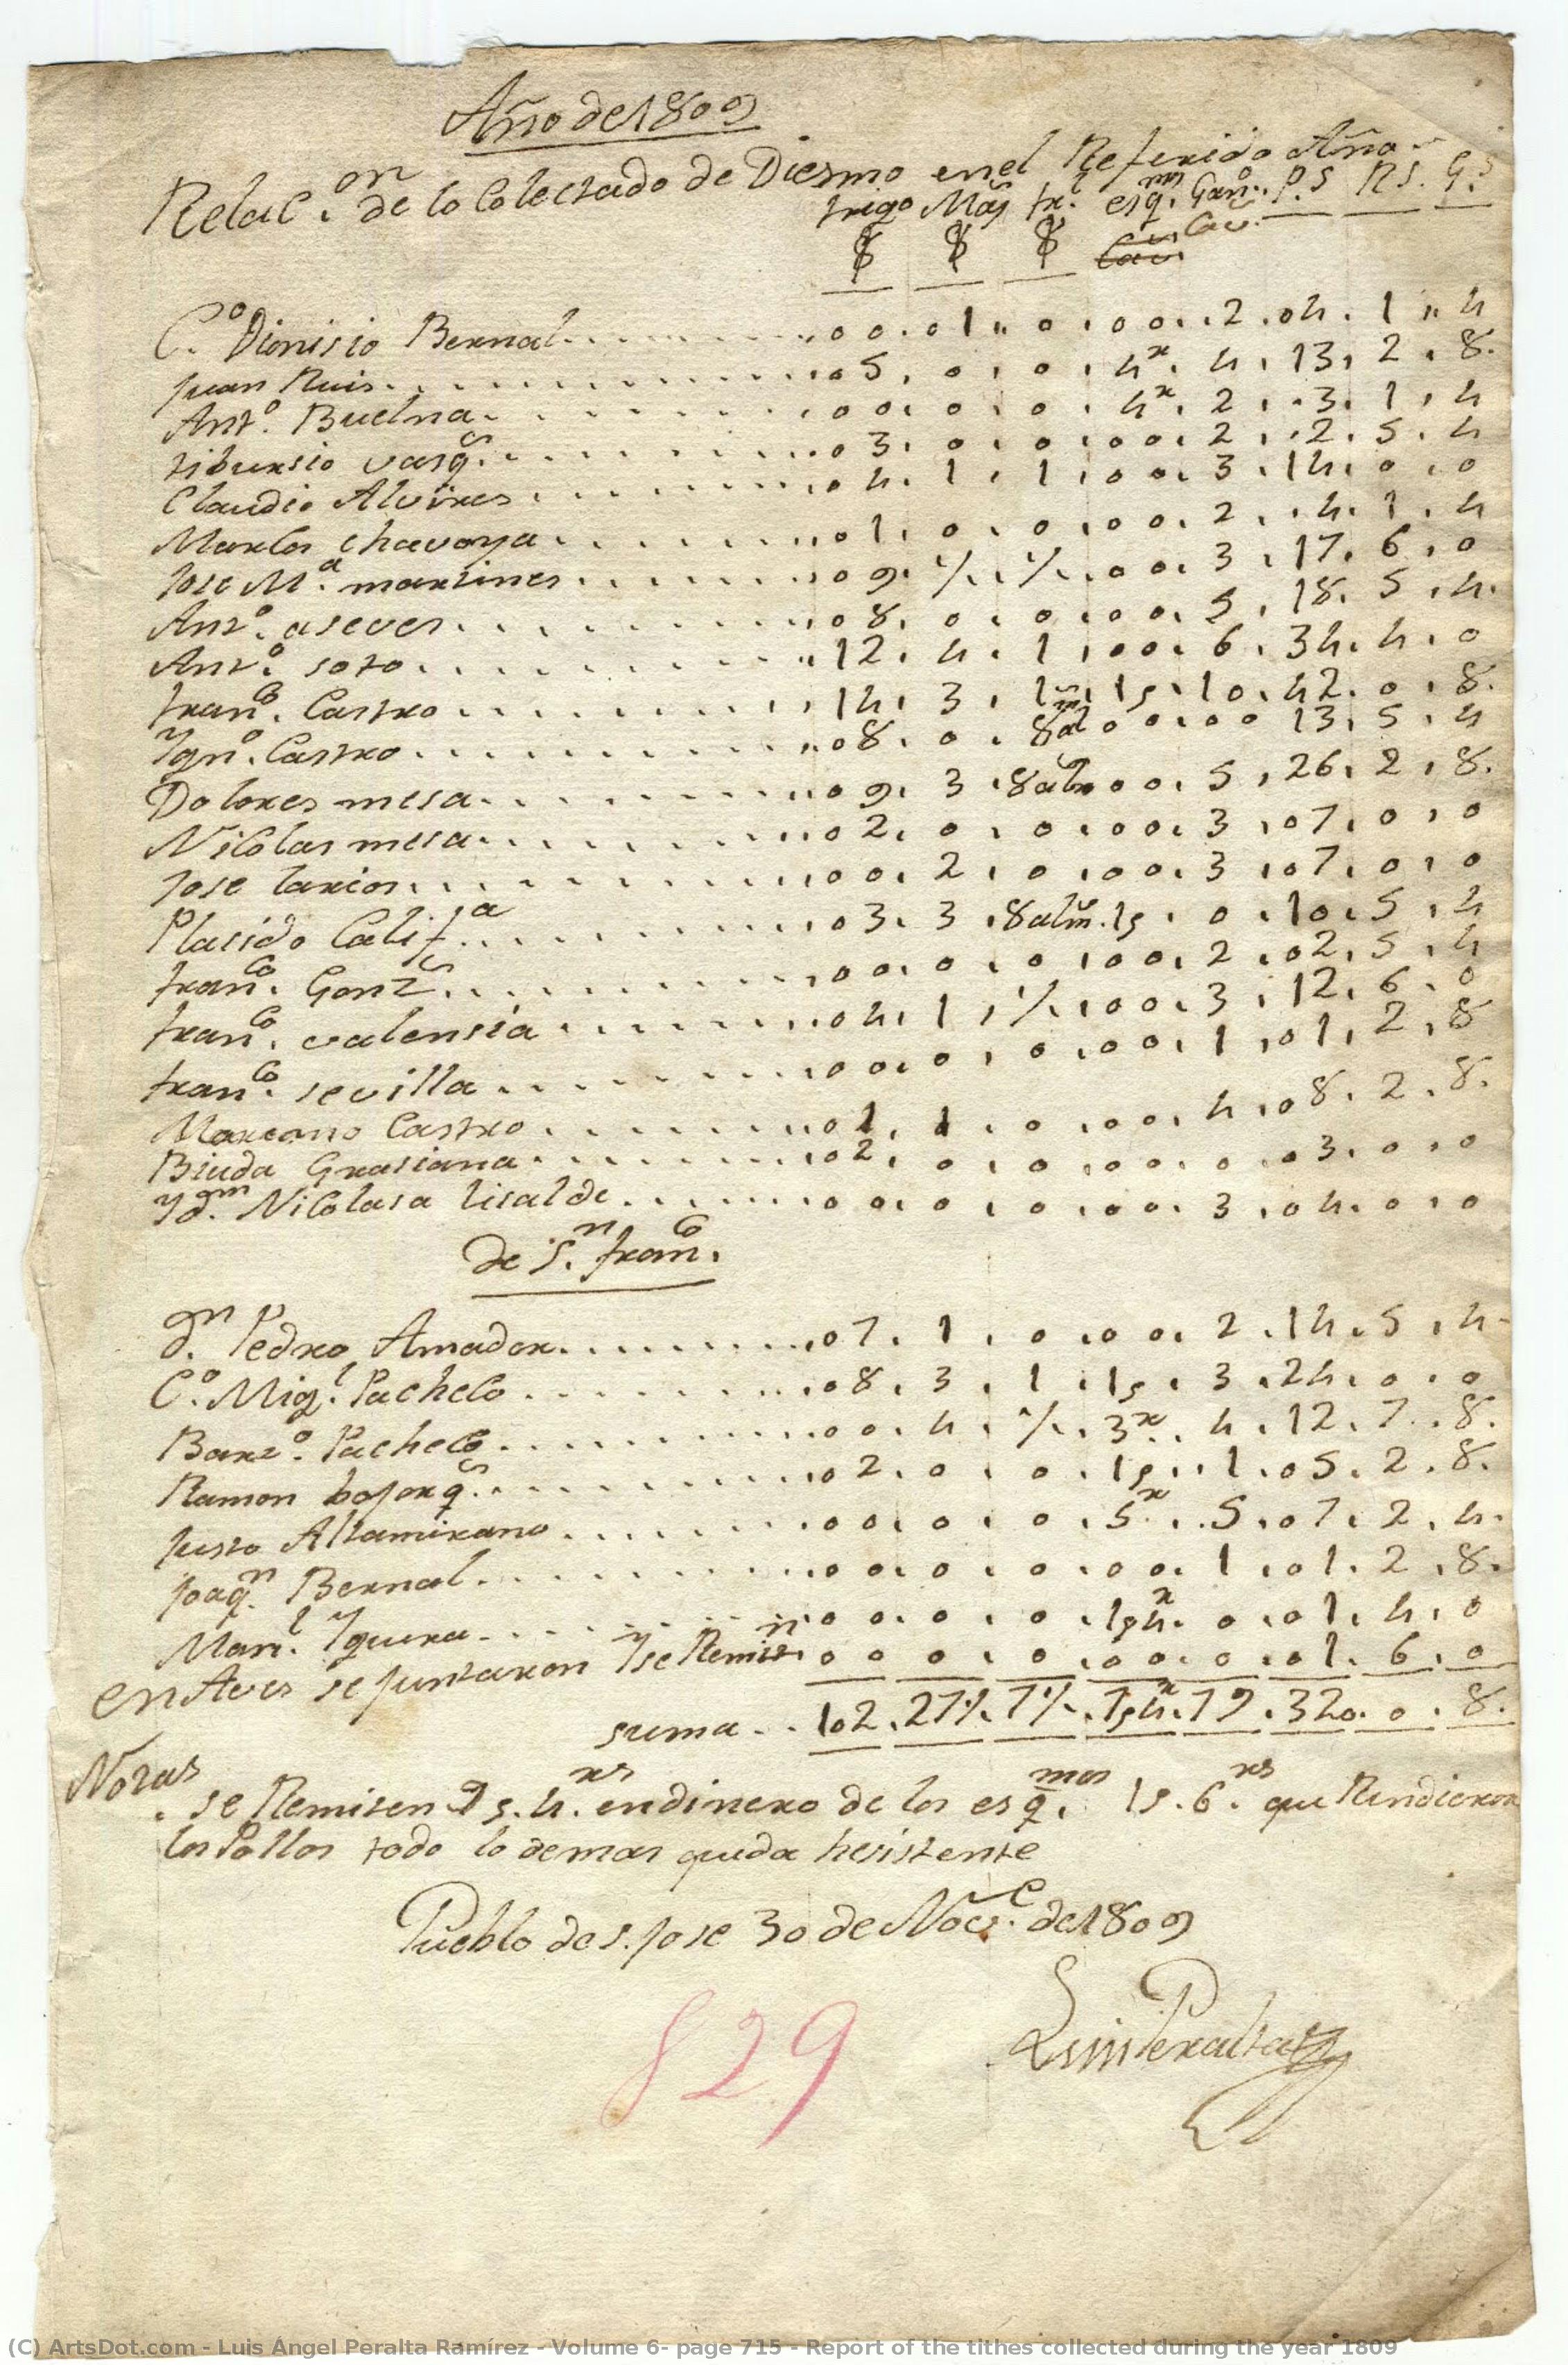 Año de 1809
Relac.on de lo Colectado de Diesmo en el Referido Año
trigo Maś fr.l esq̃.mos Gan.o P.s R.s G.s
Cau. Cau.
C.o Dionisio Bernal 00. 01 0. 00. 2. 04. 1. 4
Juan Ruis 05. 0. 0. 4r. 4. 13. 2. 8.
Ant.o Buelna 00. 0. 0. 4r. 2. 3. 1. 4
tibursio vasq.s 03. 0. 0. 00. 2. 2. 5. 4
Claudio Alvires 04. 1. 1. 00. 3. 14. 0. 0
Marcos Chavoya 01. 0. 0. 00. 2. 4. 1. 4
Jose M.a martines 09. ½. ½. 00. 3. 17. 6. 0
Ant.o aseves 08. 0. 0. 00. 5. 18. 5. 4.
Ant.o soto 12. 4. 1. 00. 6. 34. 4. 0
fran.co Castro 14. 3. 1. 1s. 10. 42. 0. 8.
Ygn.o Castro 08. 0. 8al 0 0. 00 13. 5. 4
Dolores mesa 09. 3. 8alm 00. 5. 26. 2. 8.
Nicolas mesa 02. 0. 0. 00. 3. 07. 0. 0
Jose larios 00. 2. 0. 00. 3. 07. 0. 0
Plasido Calif.a 03. 3. 8alm. 1s. 0. 10. 5. 4
fran.co Gonz.s 00. 0. 0. 00. 2. 02. 5. 4
fran.co valensia 04. 1. ½. 00. 3. 12. 6. 0
fran.co sevilla 00. 0. 0. 00. 1. 01. 2. 8
Mareano Castro 01. 1. 0. 00. 4. 08. 2. 8.
Biuda Grasiana 02. 0. 0. 00. 0. 03. 0. 0
Yd.m Nicolasa lisalde 00. 0. 0. 00. 3. 04. 0. 0
de S.n fran.co
d.n Pedro Amador 07. 1. 0. 00. 2. 14. 5. 4
C.o Mig.l Pacheco 08. 3. 1. 1s. 3. 24. 0. 0
Bart.o Pacheco 00. 4. ½. 3r. 4. 12. 7. 8.
Ramon bojorq.s 02. 0. 0. 1s. 1. 05. 2. 8.
Justo Altamirano 00. 0. 0. 5r. 5. 07. 2. 4.
Joaq.n Bernal 00. 0. 0. 00. 1. 01. 2. 8.
Man.l Yguera 00. 0. 0. 1s4r. 0. 01. 4. 0
En Aves se juntaron Y se Remit.n 00. 0. 0. 00. 0. 01. 6. 0
suma 102. 27½. 7½. 7s4r. 79. 320. 0. 8.
Notas
se Remiten 7s. 4.rs en dinero de los esq̃.mos 1s. 6.rs que Rindieron
los Pollos todo lo demas queda hesistente
Pueblo de S. Jose 30 de Nov.e de 1809
Luis Peralta
829
(C) ArtsDot.com - Luis Ángel Peralta Ramírez - Volume 6- page 715 - Report of the tithes collected during the year 1809